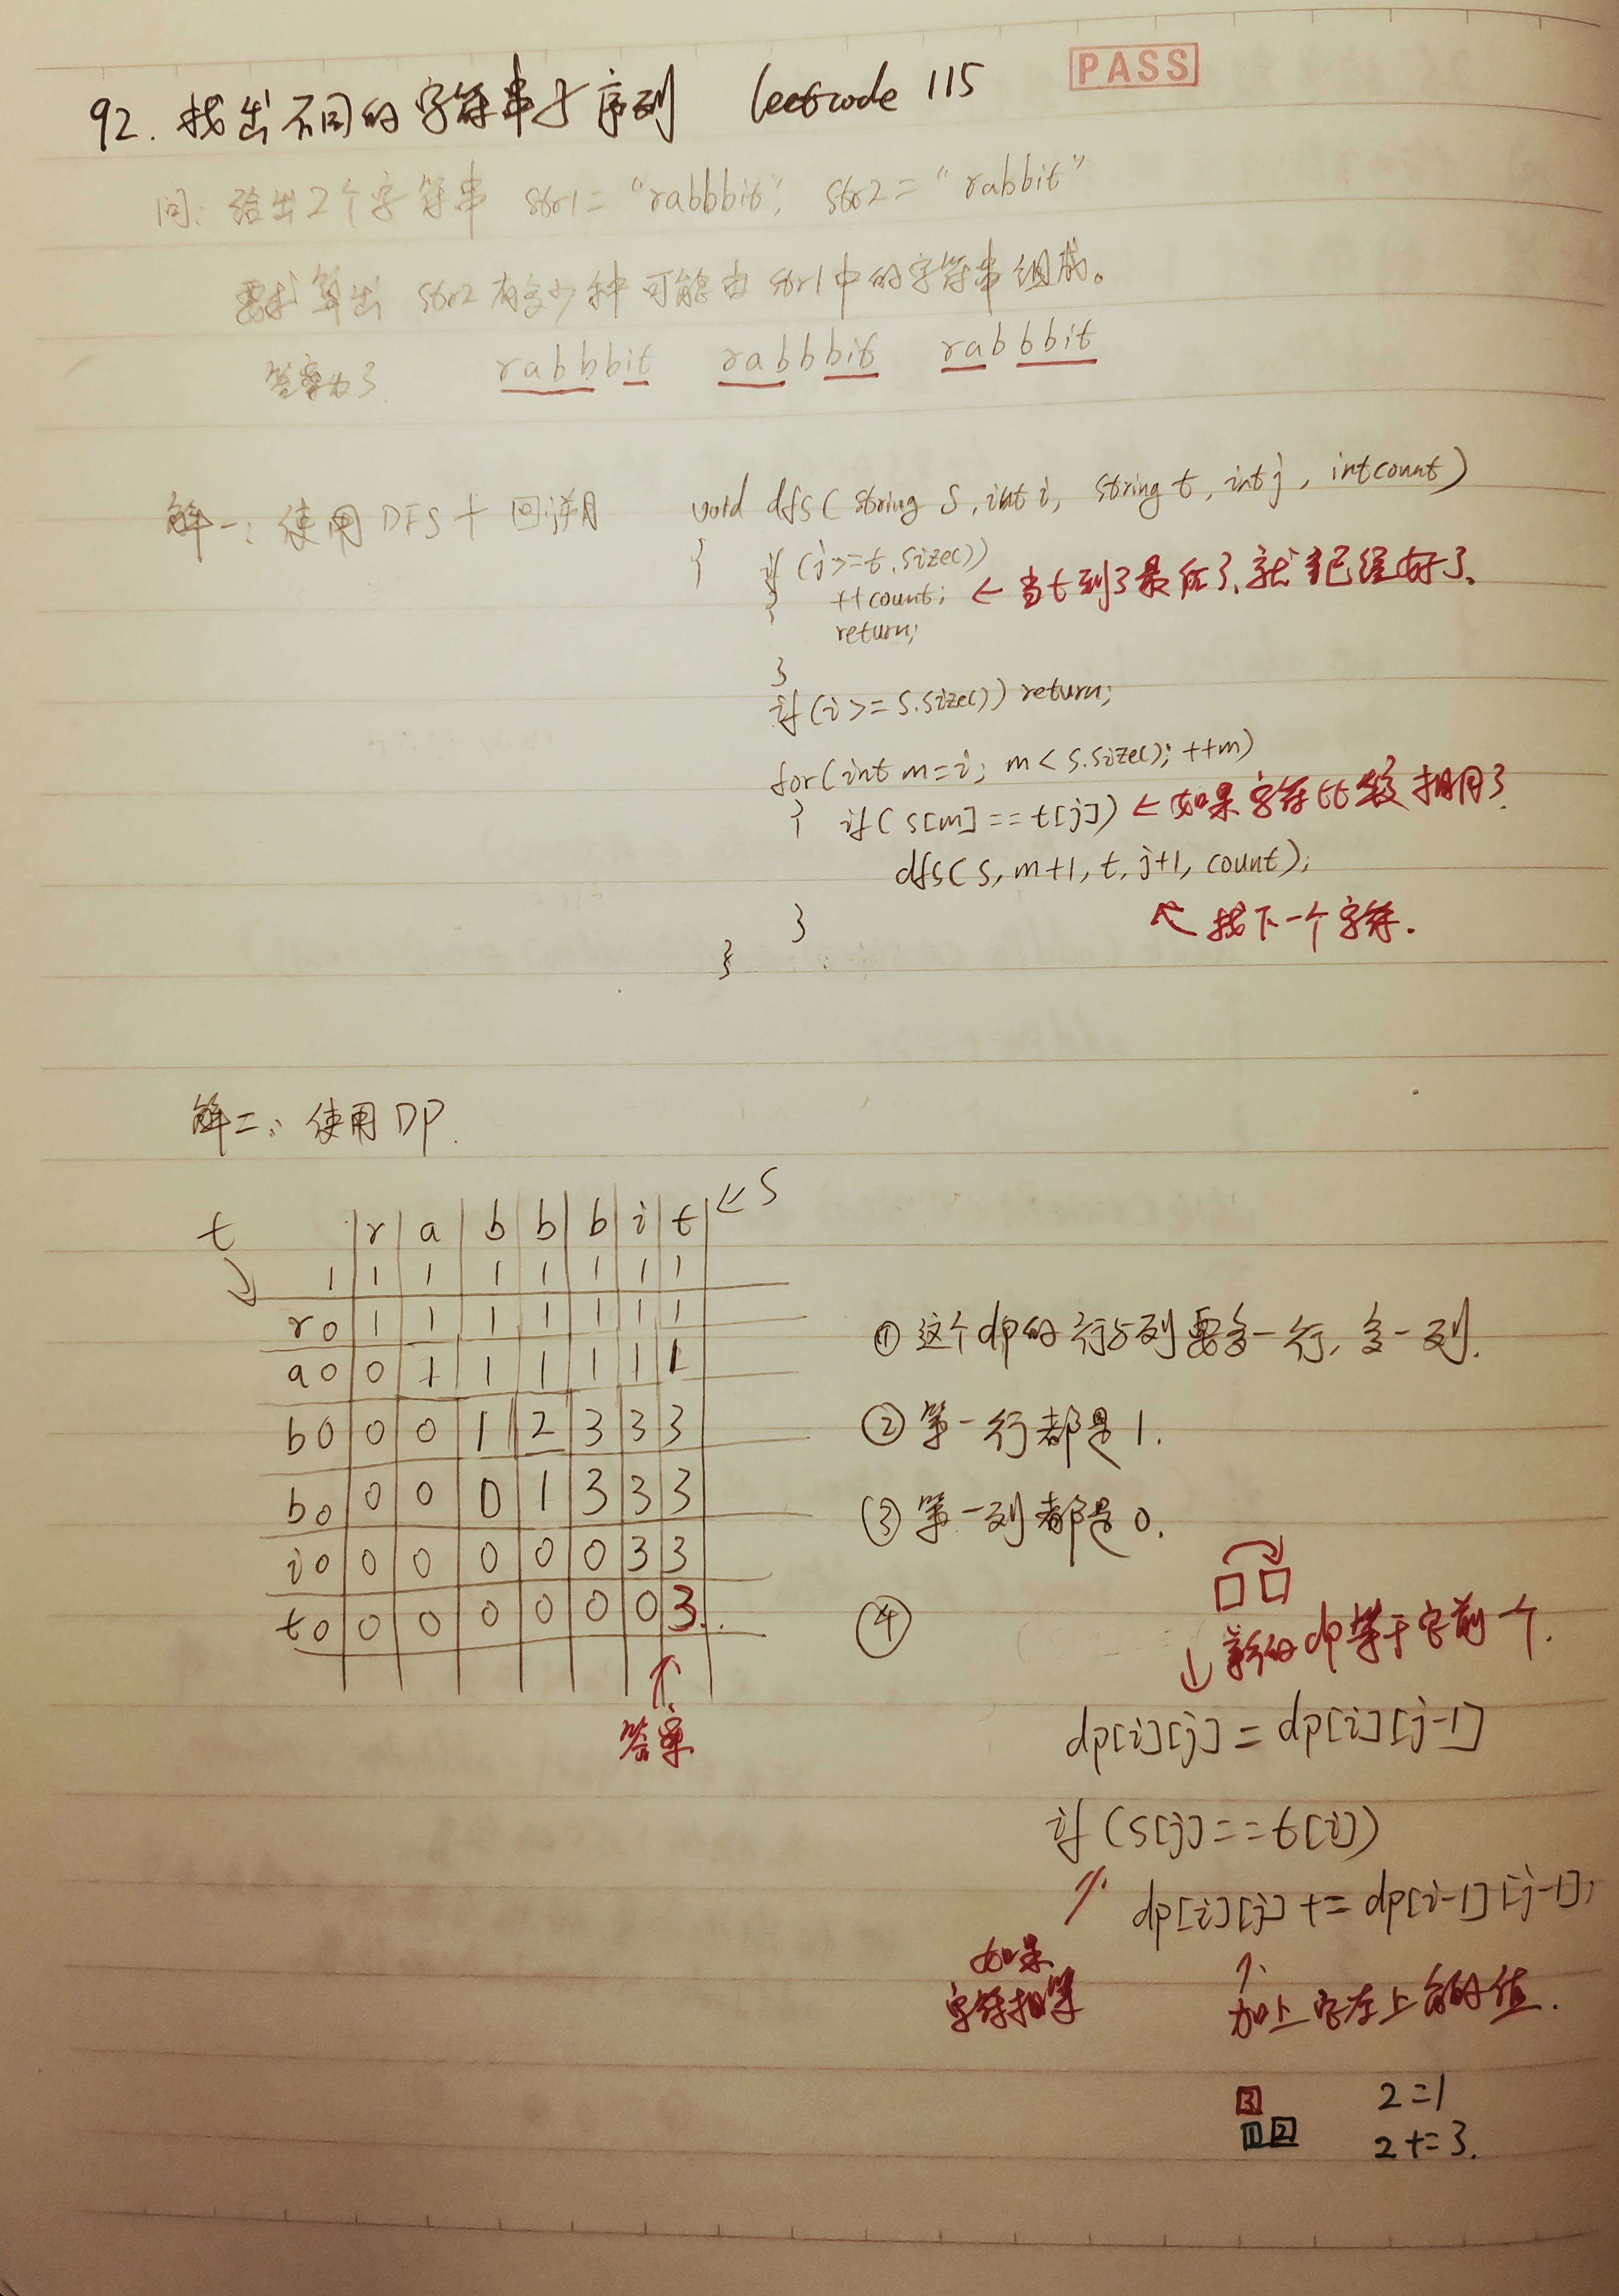 92. 找出不同的字符串子序列 leetcode 115 PASS
问: 给出2个字符串 str1 = "rabbbit", str2 = "rabbit"
要求算出 str2 有多少种可能由 str1 中的字符串组成。
答案为3 rabbbit rabbbit rabbbit
解一: 使用DFS + 回溯 void dfs( string s, int i, string t, int j, int count)
{ if (j>=t.size())
{ ++count; ← 当t到了最后了,就已经好了.
return;
}
if (i >= s.size()) return;
for(int m=i; m < s.size(); ++m)
{ if( s[m] == t[j]) ← 如果字符比较相同了.
dfs( s, m+1, t, j+1, count);
} ↖ 找下一个字符.
}
解二: 使用DP.
t r a b b b i t ← S
1 1 1 1 1 1 1 1
r 0 1 1 1 1 1 1 1
a 0 0 1 1 1 1 1 1
b 0 0 0 1 2 3 3 3
b 0 0 0 0 1 3 3 3
i 0 0 0 0 0 0 3 3
t 0 0 0 0 0 0 0 3
↑
答案
① 这个dp的行与列要多一行, 多一列.
② 第一行都是1.
③ 第一列都是0.
④
↓ 新的dp等于它前一个.
dp[i][j] = dp[i][j-1]
if (s[j] == t[i])
dp[i][j] += dp[i-1][j-1];
如果
字符相等
↑
加上它左上角的值.
3 2 = 1
1 2 2 += 3.